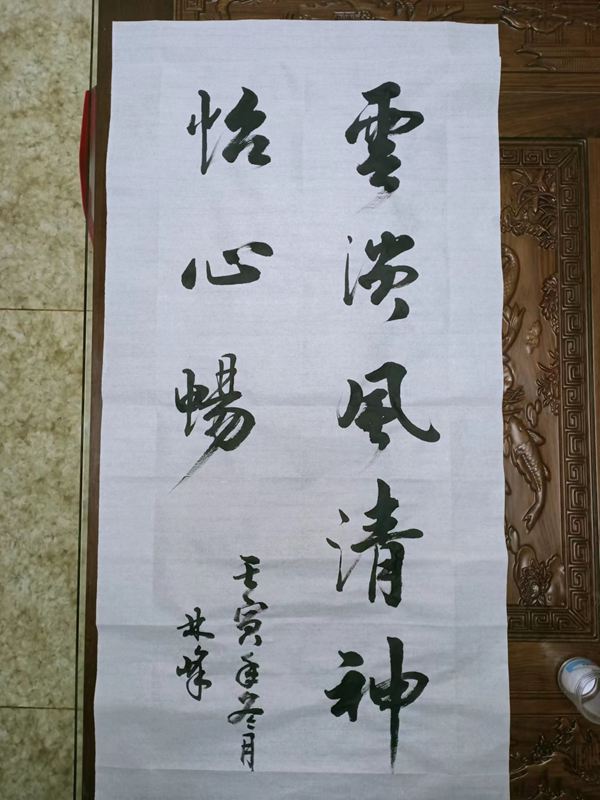 雲淡風清神
怡心暢
壬寅年冬月
林峰